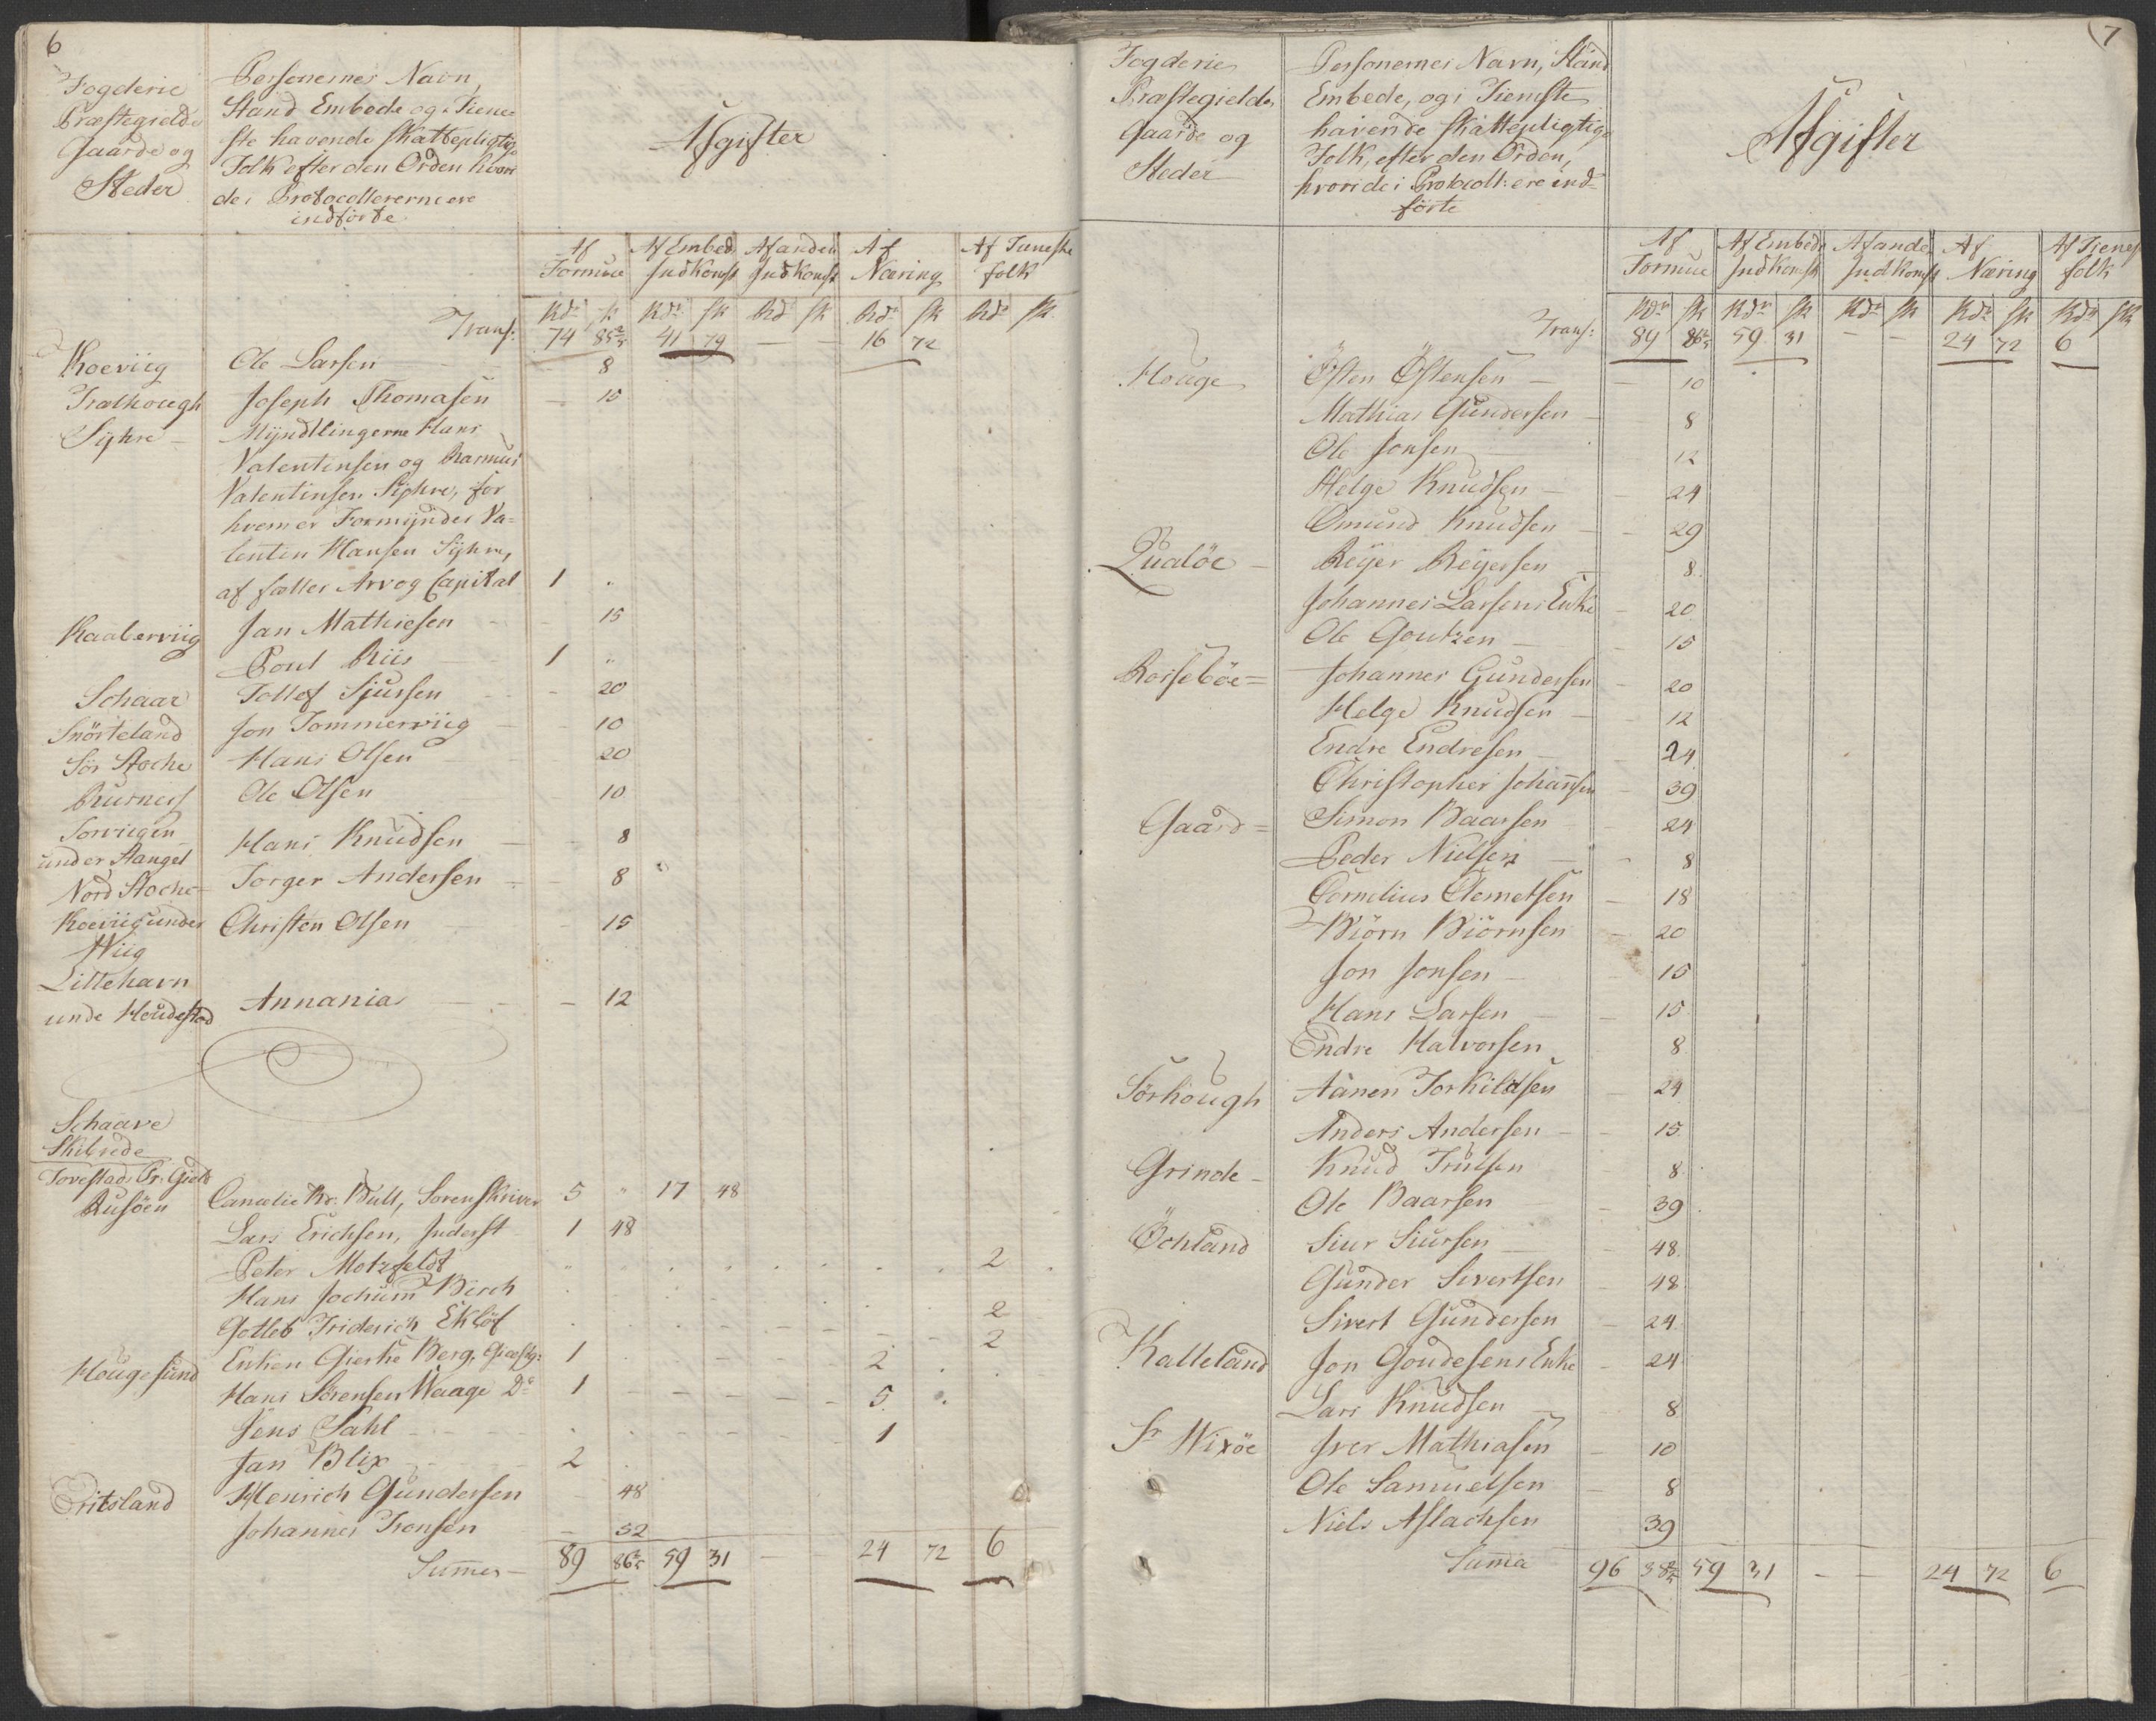 6
Fogderie Præstegield Gaarde og Steder
Personernes Navn, Stand Embede og i Tieneste havende skattepligtige Folk efter den Orden hvori de i Protocollererne ere indførte
Afgifter
Af Formue | Af Embed. Indkomst | Af anden Indkomst | Af Næring | Af Tieneste folk
Rdr sk | Rdr sk | Rdr sk | Rdr sk | Rdr sk
Transp: 74 85 2/5 | 41 79 | — — | 16 72
Koeviig Ole Larsen — 8
Trælhough Joseph Thomasen — 15
Syhre — Myndtlingerne Hans
Valentinsen og Rasmus
Valentinsen Syhre, for
hvem er Formynder Va=
lentin Hansen Syhre,
af fælles Arv og Capital 1 "
Kaaberviig Jan Mathiesen — 15
Poul Riis 1 "
Schaar Tollef Sjursen — 20
Snörteland Jon Tommerviig — 10
Sör Stoche Hans Olsen — 20
Rusnes Ole Olsen — 10
Sorviigen under Stangel Hans Knudsen — 8
Nord Stoche Torger Andersen — 8
Koeviig under Wiig Christen Olsen — 15
Littehavn unde Houdestad Annanias — 12
Schaare
Skibrede
Torvestad Pr: Gield
Rusöen Cancelie Rr: Bull, Sorenskriver 5 " 17 48
Lars Erichsen, Inderst 1 48
Peter Motzfeldt 2
Hans Jochum Birch
Gotleb Friderich Eklöf 2
2
Hougesund Enken Giertrue Berg, Giæstg: 1 — 2
Hans Sörensen Waage Do 1 — 5
Jens Sahl — 1
Jan Blix 2
Eritsland Henrich Gundersen — 48
Johannes Tronsen — 52
Summer — 89 86 2/5 | 59 31 | — | 24 72 | 6
7
Fogderie Præstegielde Gaarde og Steder
Personernes Navn, Stand Embede, og i Tieneste havende skattepligtige Folk, efter den Orden, hvori de i Protocoll: ere indførte
Afgifter
Af Formue | Af Embede Indkomst | Af anden Indkomst | Af Næring | Af Tienest folk
Rdr sk | Rdr sk | Rdr sk | Rdr sk | Rdr sk
Transp: 89 86 2/5 | 59 31 | — — | 24 72 | 6
Houge Östen Östensen — 10
Mathias Gundersen — 8
Ole Jonsen — 12
Helge Knudsen — 24
Omund Knudsen — 29
Qualöe — Reyer Reyersen — 8
Johannes Larsens Enke — 20
Ole Goutzen — 15
Roiseböe = Johannes Gundersen — 20
Helge Knudsen — 12
Endre Endresen — 24
Christopher Johannsen — 39
Gaard = Simon Baarsen — 24
Peder Nielsen — 8
Cornelius Clemetsen — 18
Biörn Biörnsen — 20
Jon Jonsen — 15
Hans Larsen — 15
Endre Halvorsen — 8
Sörhough Aanen Torkildsen — 24
Anders Andersen — 15
Grinde — Knud Trulsen — 8
Ole Baarsen — 39
Öchland Siur Siursen — 48
Gunder Sivertsen — 48
Sivert Gundersen — 24
Kalleland Jon Goudesens Enke — 24
Lars Knudsen — 8
Sr Wixöe Iver Mathiasen — 10
Ole Samuelsen — 8
Niels Aslachsen 39
Summa 96 38 2/5 | 59 31 | — — | 24 72 | 6